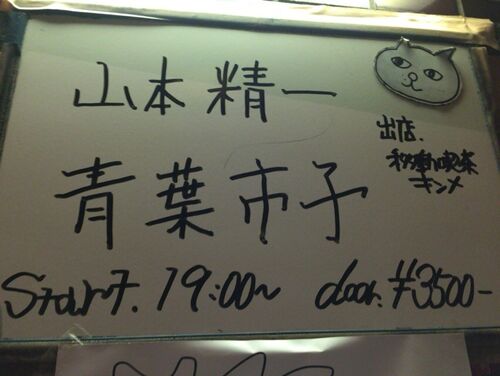 山本精一
青葉市子
出店.
移動喫茶
キンメ
Start. 19:00~ door. ¥3500-